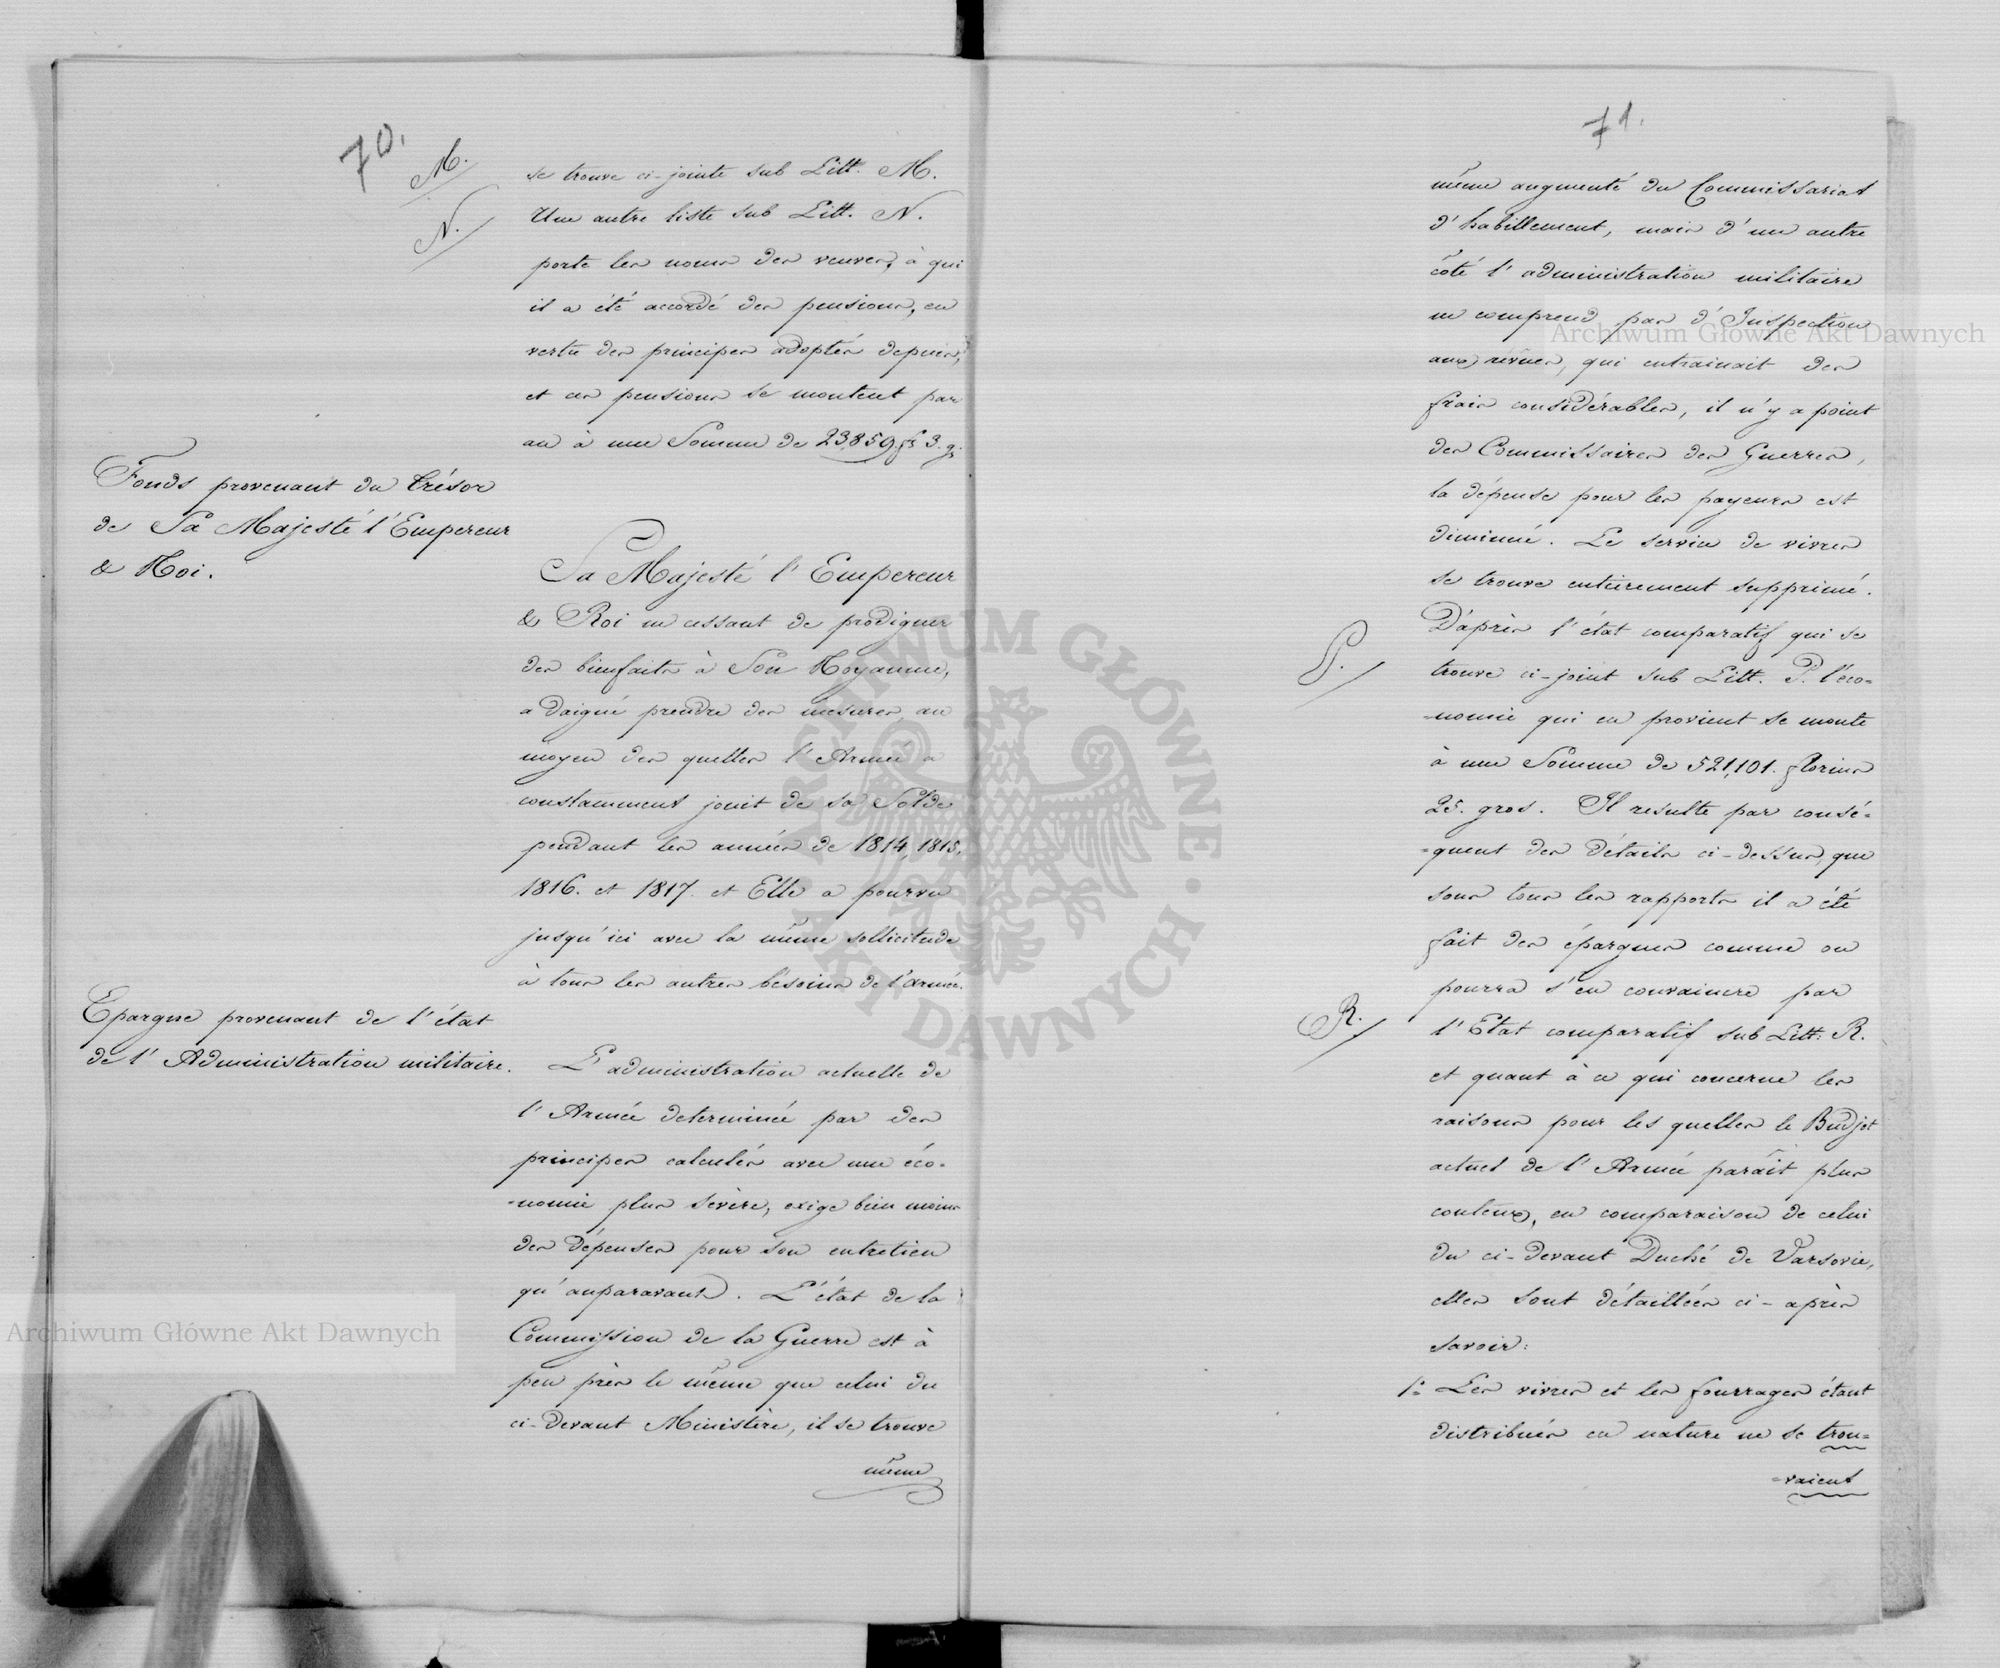 70.
M.
N.
se trouve ci-jointe sub Litt. M.
Une autre liste sub Litt. N.
porte les noms des veuves, à qui
il a été accordé des pensions, en
vertu des principes adoptés depuis,
et ces pensions se montent par
an à une Somme de 23,859 fs 3. g.
Fonds provenant du trésor
de Sa Majesté l'Empereur
& Roi.
Sa Majesté l'Empereur
& Roi ne cessant de prodiguer
des bienfaits à Son Royaume,
a daigné prendre des mesures, au
moyen des quelles l'Armée a
constamment jouit de sa Solde
pendant les années de 1814, 1815,
1816. et 1817. et Elle a pourvu
jusqu'ici avec la même sollicitude
à tous les autres bésoins de l'armée.
Epargne provenant de l'état
de l'Administration militaire.
L'administration actuelle de
l'Armée determinée par des
principes calculés avec une éco-
-nomie plus sévère, exige bien moins
des dépenses pour son entretien
qu'auparavant. L'état de la
Commission de la Guerre est à
peu près le même que celui du
ci-devant Ministère, il se trouve
même
71.
même augmenté du Commissariat
d'habillement, mais d'un autre
côté l'administration militaire
ne comprend pas d'Inspection
aux révues, qui entrainait des
frais considérables, il n'y a point
des Commissaires des Guerres,
la dépense pour les payeurs est
diminué. Le service de vivres
se trouve entièrement supprimé.
P.
D'après l'état comparatif qui se
trouve ci-joint sub Litt. P. l'éco-
-nomie qui en provient se monte
à une Somme de 521,101. florins
25. gros. Il resulte par consé-
-quent des détails ci-dessus, que
sous tous les rapports il a été
fait des épargnes comme on
pourra s'en convaincre par
R.
l'Etat comparatif sub Litt: R.
et quant à ce qui concerne les
raisons pour les quelles le Budjet
actuel de l'Armée parâit plus
couteux, en comparaison de celui
du ci-devant Duché de Varsovie,
elles sont détaillées ci-après
savoir:
1º Les vivres et les fourrages étant
distribués en nature ne se trou-
-vaient
Archiwum Główne Akt Dawnych
Archiwum Główne Akt Dawnych
ARCHIWUM GŁÓWNE AKT DAWNYCH